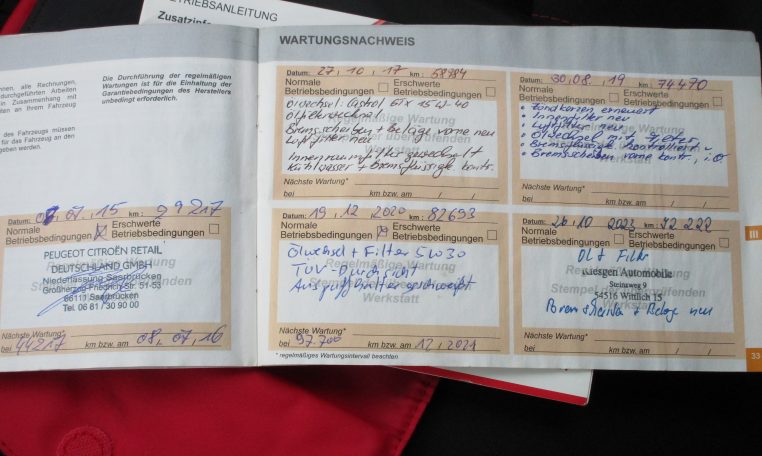 BETRIEBSANLEITUNG
Zusatzinfo
nnen, alle Rechnungen,
durchgeführten Arbeiten
in Zusammenhang mit
ten an Ihrem Fahrzeug
des Fahrzeugs müssen
für das Fahrzeug an den
geben werden.
Die Durchführung der regelmäßigen
Wartungen ist für die Einhaltung der
Garantiebedingungen des Herstellers
unbedingt erforderlich.
Datum: 08, 07, 15 km: 29217
Normale Betriebsbedingungen
Erschwerte Betriebsbedingungen
PEUGEOT CITROËN RETAIL
DEUTSCHLAND GMBH
Niederlassung Saarbrücken
Großherzog-Friedrich-Str. 51-53
66111 Saarbrücken
Tel. 06 81 / 30 90 00
Nächste Wartung*
bei 44217 km bzw. am 08, 07, 16
WARTUNGSNACHWEIS
Datum: 27, 10, 17 km: 58984
Normale Betriebsbedingungen
Erschwerte Betriebsbedingungen
Regelmäßige Wartung
Ölwechsel: Castrol
Ölfilterwechsel
Bremsscheiben + Beläge vorne neu
Luftfilter neu
Innenraumfilter gewechselt
Kühlwasser + Bremsflüssigk. kontr.
Werkstatt
Nächste Wartung*
bei km bzw. am / /
Datum: 30, 08, 19 km: 74470
Normale Betriebsbedingungen
Erschwerte Betriebsbedingungen
• Zündkerzen erneuert
• Innenfilter neu
• Luftfilter neu
• Ölwechsel mit Filter
• Bremsflüssigk. kontrolliert
• Bremsscheiben vorne kontr., i.O
Werkstatt
Nächste Wartung*
bei km bzw. am / /
Datum: 19, 12, 2020 km: 82693
Normale Betriebsbedingungen
Erschwerte Betriebsbedingungen
Regelmäßige Wartung
Stempel der ausführenden
Werkstatt
Ölwechsel + Filter 5W30
TÜV-Durchsicht
Nächste Wartung*
bei 97.700 km bzw. am 12, 2021
* regelmäßiges Wartungsintervall beachten
Datum: 26, 10 2023 km:
Normale Betriebsbedingungen
Erschwerte Betriebsbedingungen
Öl + Filter
Giesgen Automobile
Steinweg 9
54516 Wittlich 15
Bremsscheiben + Beläge neu
Nächste Wartung*
bei km bzw. am / /
III
33